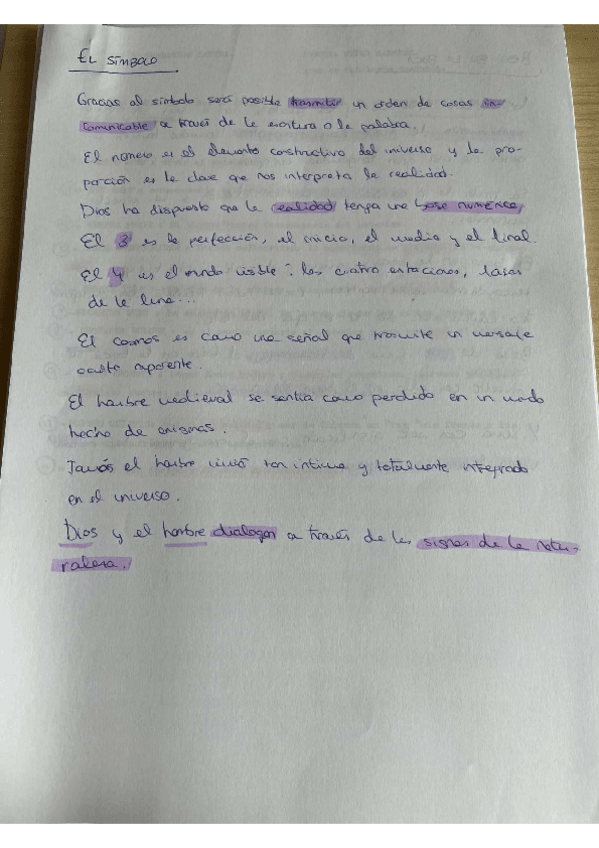 EL SÍMBOLO
Gracias al símbolo será posible transmitir un orden de cosas in-
comunicable a través de la escritura o la palabra.
El número es el elemento constructivo del universo y la pro-
porción es la clave que nos interpreta la realidad.
Dios ha dispuesto que la realidad tenga una base numérica,
El 3 es la perfección, el inicio, el medio y el final.
El 4 es el mundo visible: las cuatro estaciones, fases
de la luna...
El cosmos es como una señal que trasmite un mensaje
oculto aparente.
El hombre medieval se sentía como perdido en un mundo
hecho de enigmas.
Jamás el hombre vivió tan íntima y totalmente integrado
en el universo.
Dios y el hombre dialogan a través de los signos de la natu-
raleza.